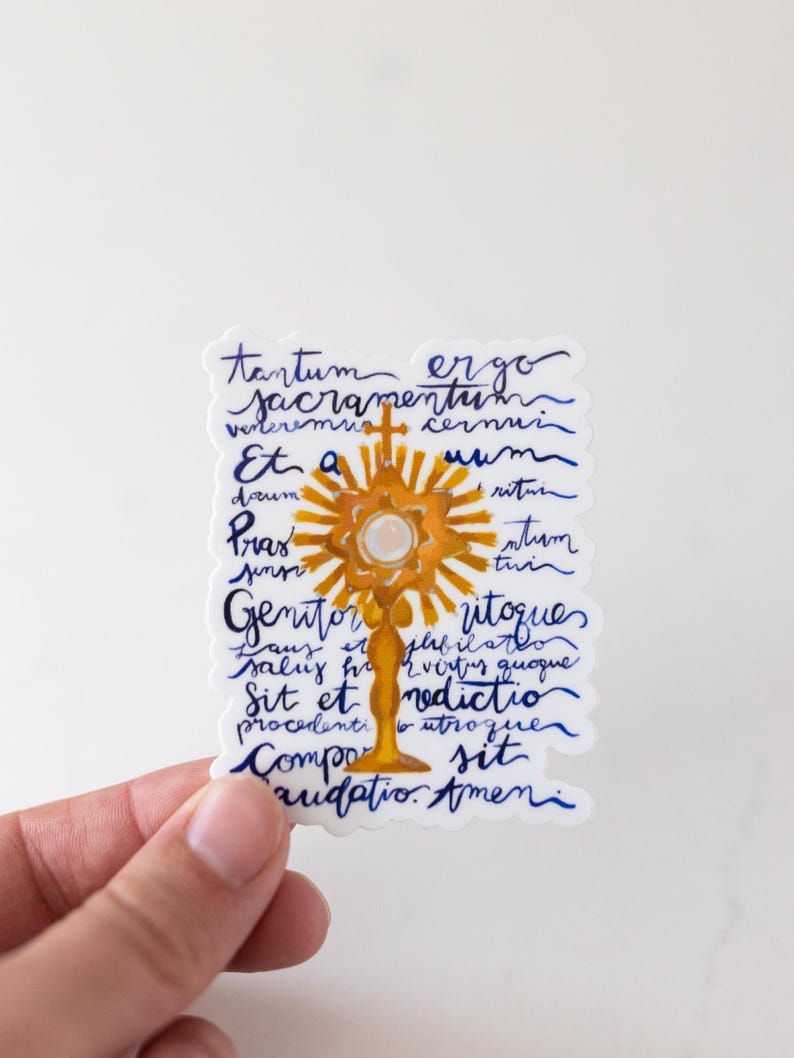 tantum ergo
sacramentum
veneremur cernui
Et a uum
docum ritui
Pras ntum
sensi tui
Genitor itoque
Laus et jubilatio
salus h virtus quoque
Sit et nedictio
procedenti b utroque
Compar sit
laudatio. Amen.